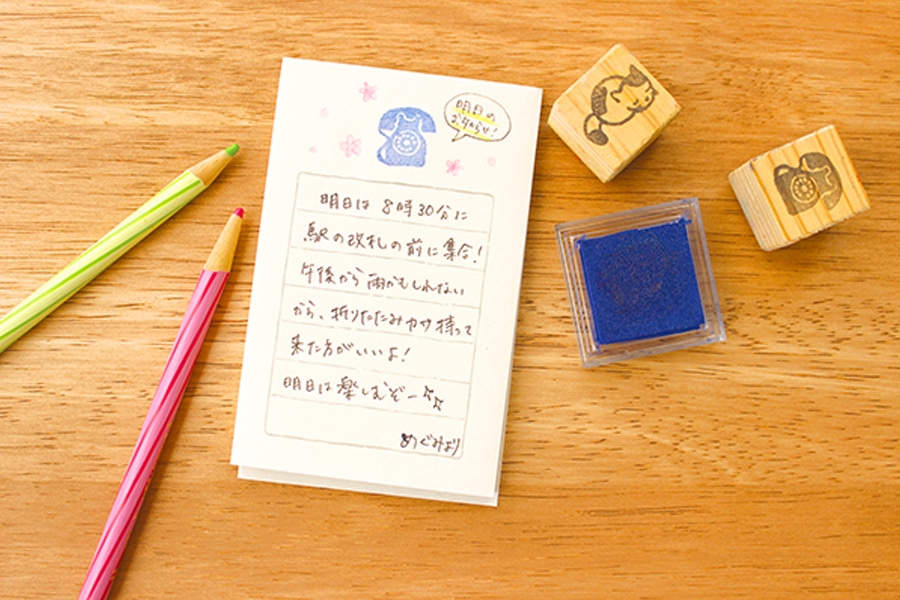 明日の
お知らせ!
明日は 8時30分に
駅の改札の前に集合!
午後から雨かもしれない
から、折りたたみカサ持って
来た方がいいよ!
明日は楽しむぞー☆☆
めぐみより